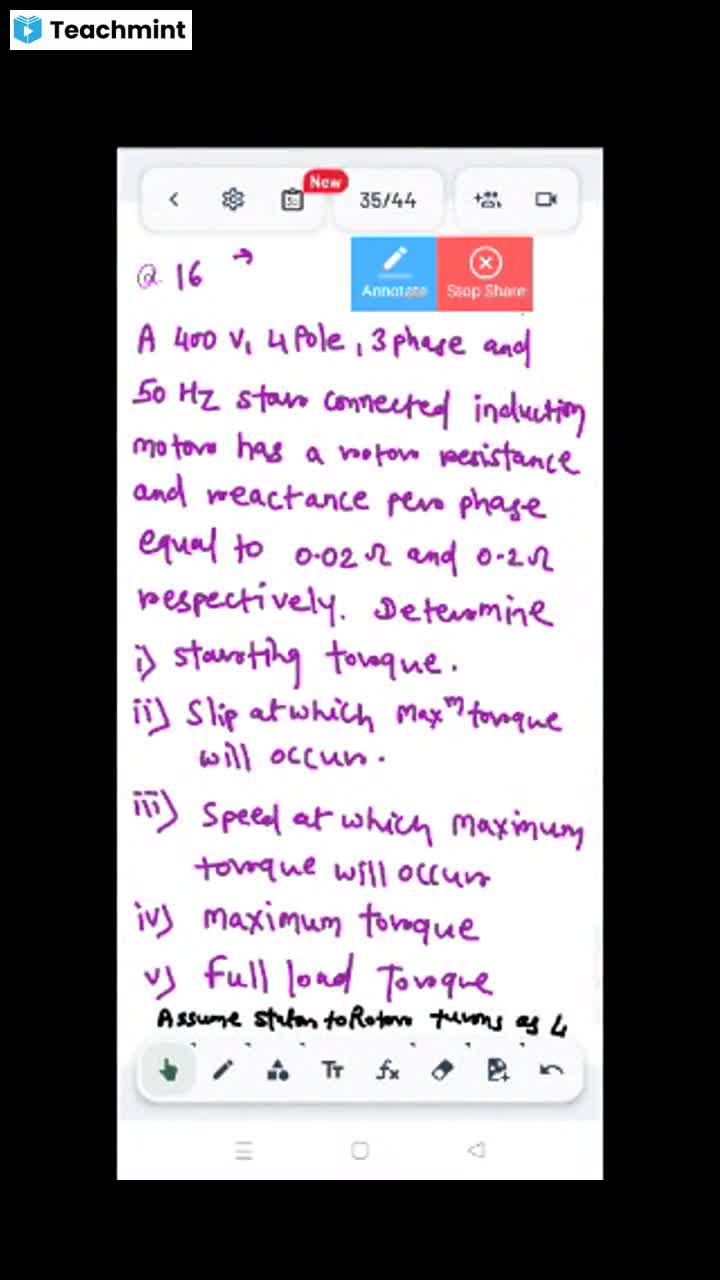 Teachmint
New
35/44
Annotate Stop Share
Q 16 →
A 400 V, 4 Pole, 3 phase and
50 HZ star connected induction
motor has a rotor resistance
and reactance per phase
equal to 0.02 Ω and 0.2 Ω
respectively. Determine
i) starting torque.
ii) Slip at which maxᵐ torque
will occur.
iii) Speed at which maximum
torque will occur
iv) maximum torque
v) full load Torque
Assume stator to Rotor turns as 4
Tт fx